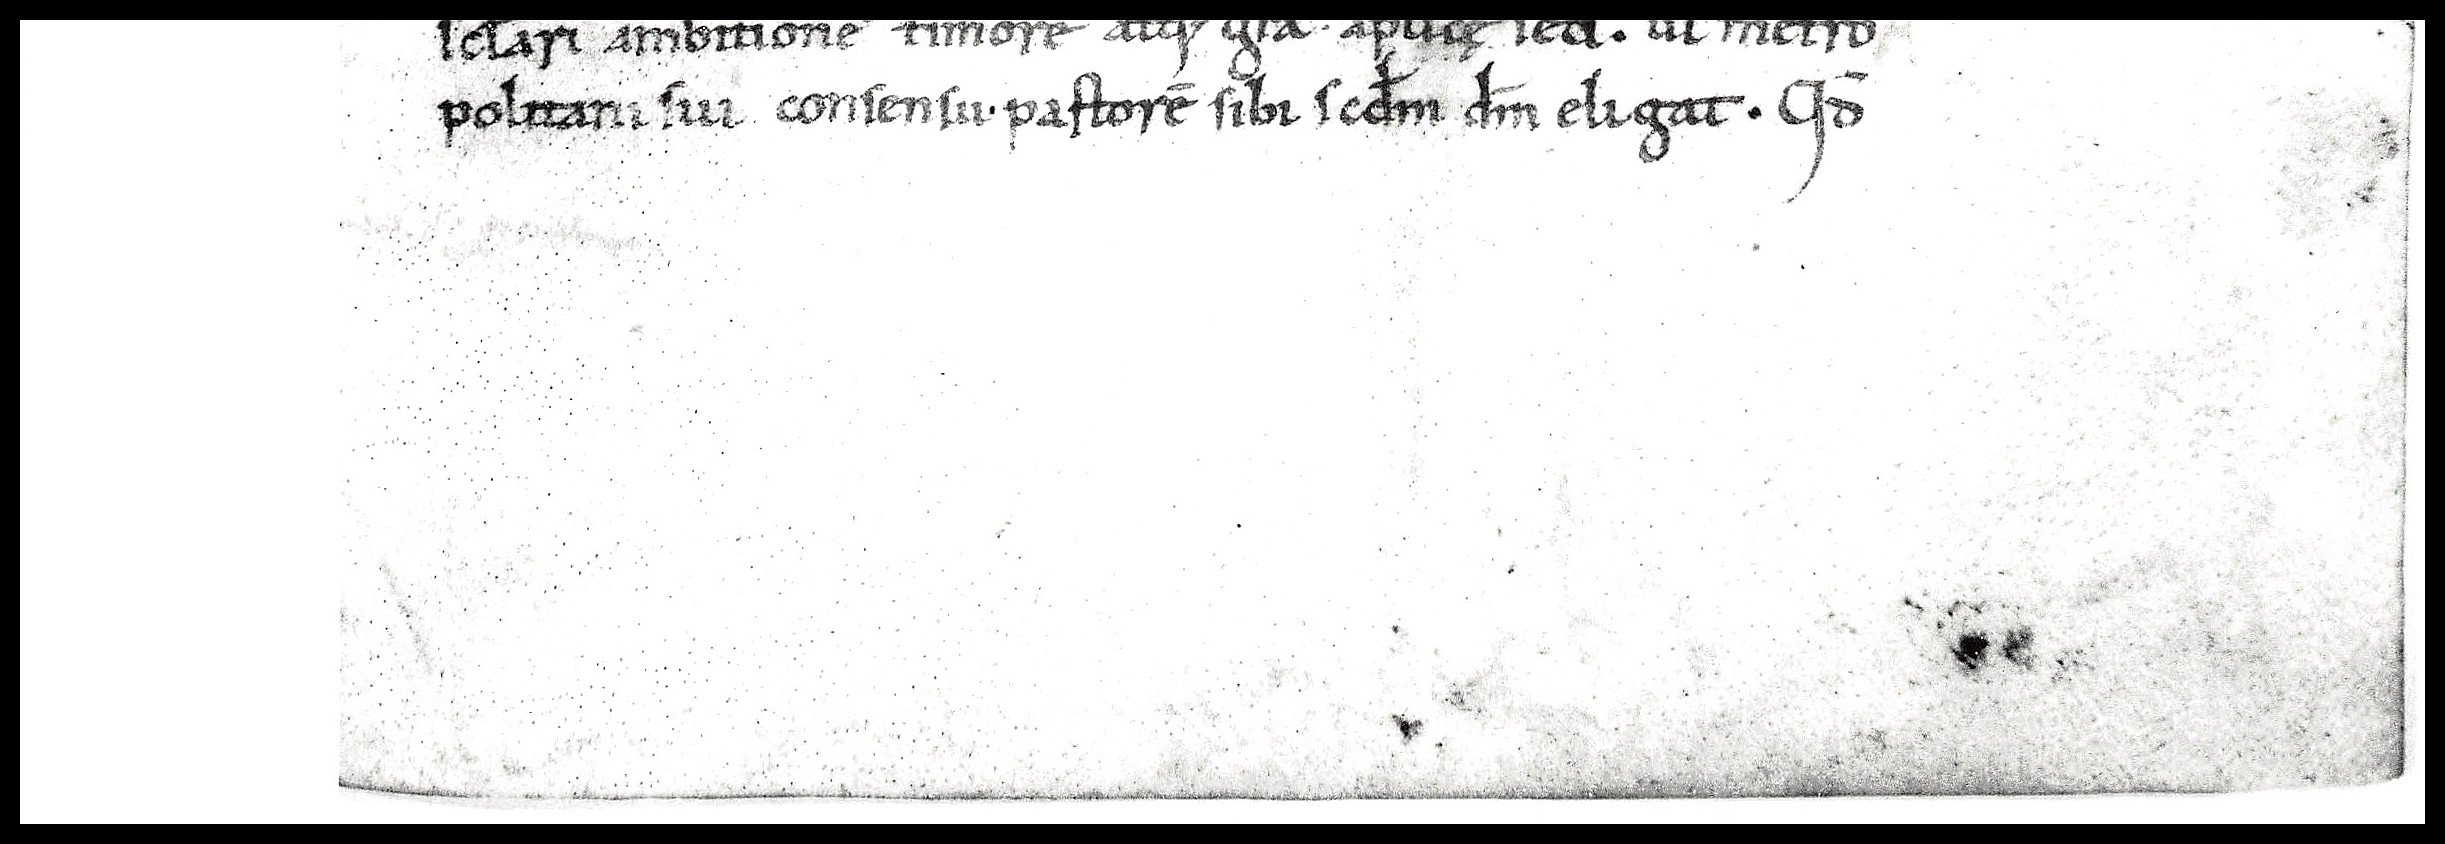 sclari ambitione timore atq; gra· aplicę sedi. ut metro
politani sui consensu· pastorē sibi scdm dm eligat. Qd̄